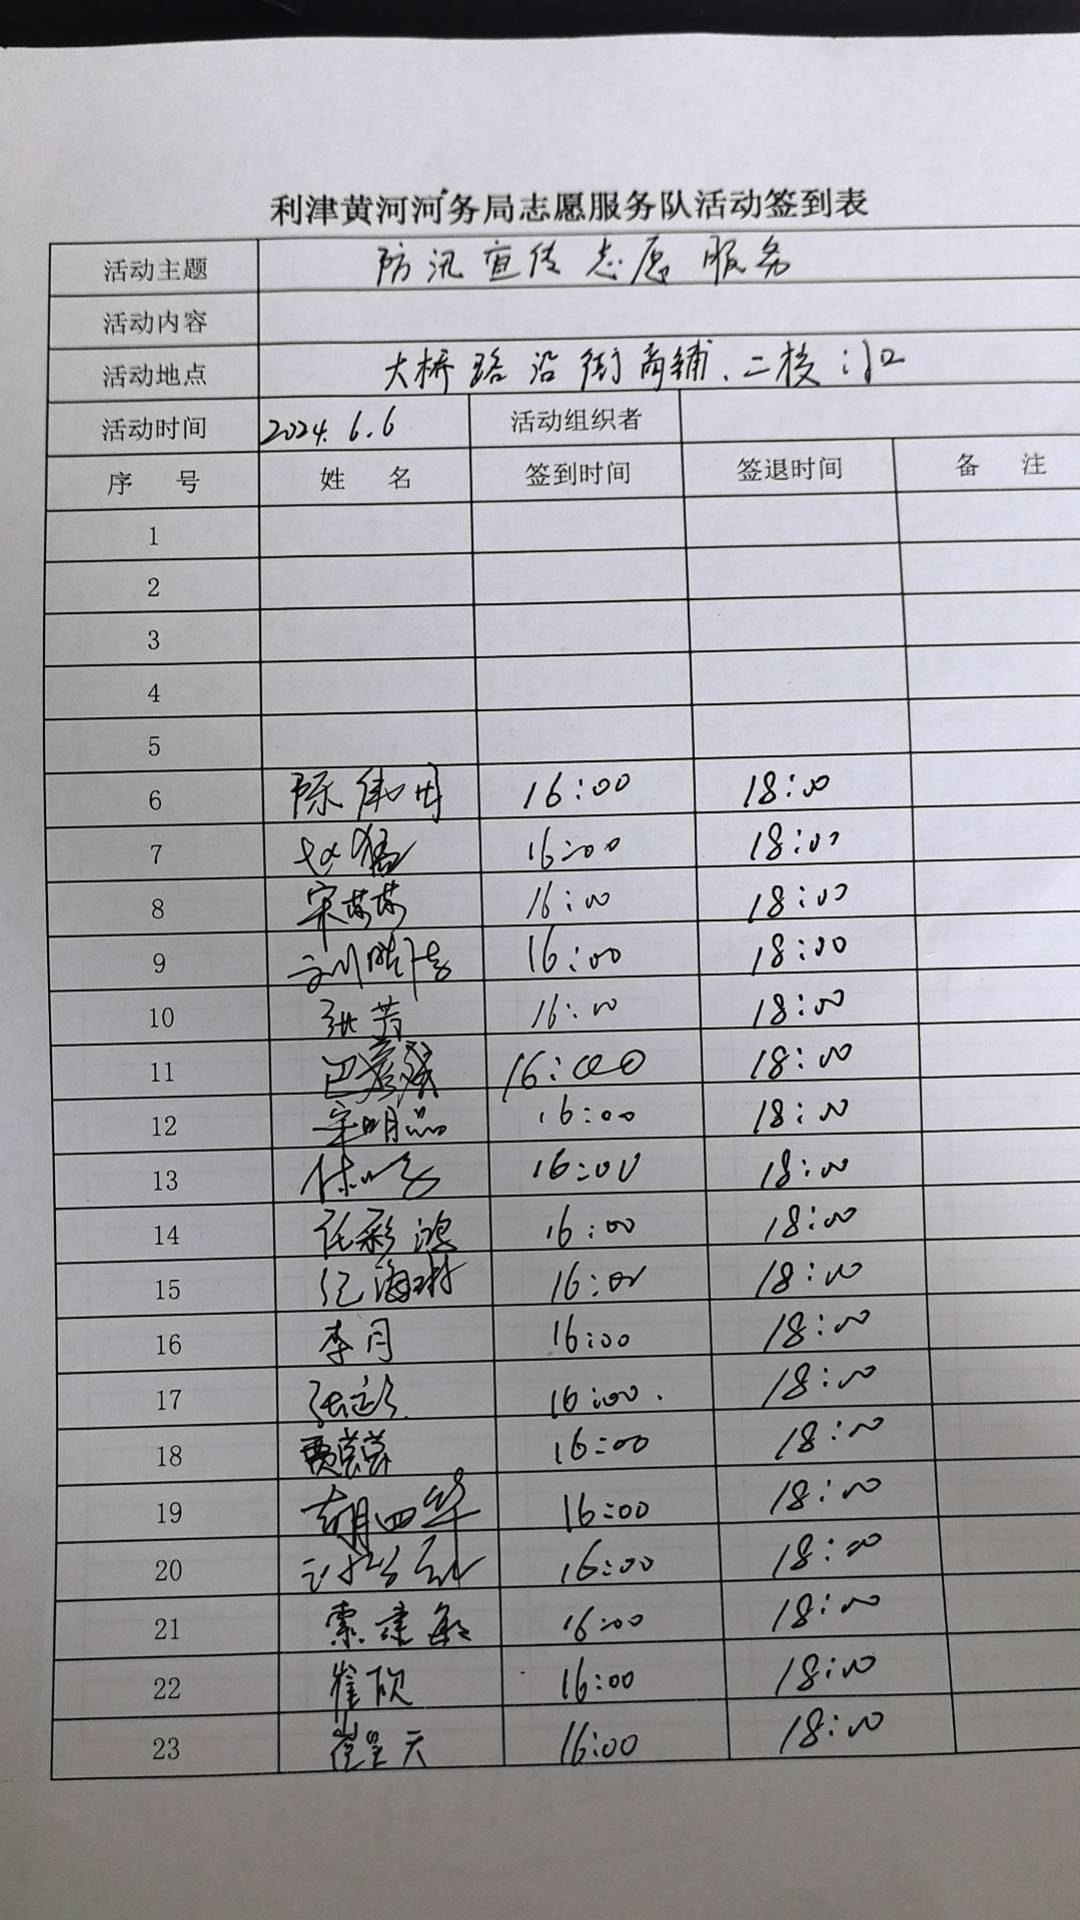 利津黄河河务局志愿服务队活动签到表
活动主题 防汛宣传志愿服务
活动内容
活动地点 大桥路沿街商铺、二校门口
活动时间 2024.6.6 活动组织者
序 号 姓 名 签到时间 签退时间 备 注
1
2
3
4
5
6 陈 16:00 18:00
7 赵猛 16:00 18:00
8 宋 16:00 18:00
9 刘 16:00 18:00
10 张芳 16:00 18:00
11 巴 16:00 18:00
12 宋明品 16:00 18:00
13 16:00 18:00
14 彩鸿 16:00 18:00
15 纪海琳 16:00 18:00
16 李月 16:00 18:00
17 张 16:00. 18:00
18 贾 16:00 18:00
19 胡四华 16:00 18:00
20 16:00 18:00
21 索建敏 16:00 18:00
22 崔欣 16:00 18:00
23 崔昊天 16:00 18:00